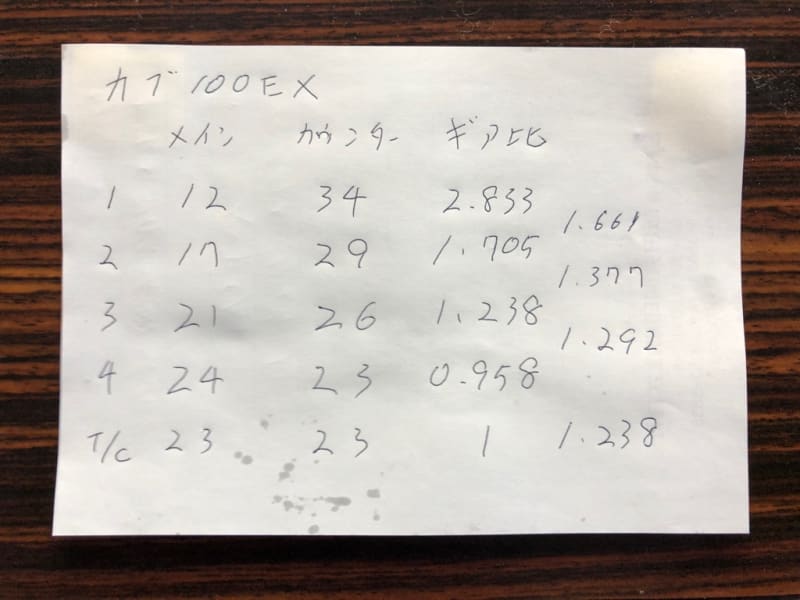 カブ 100EX
メイン カウンター ギア比
1 12 34 2.833
1.661
2 17 29 1.705
1.377
3 21 26 1.238
1.292
4 24 23 0.958
T/C 23 23 1 1.238